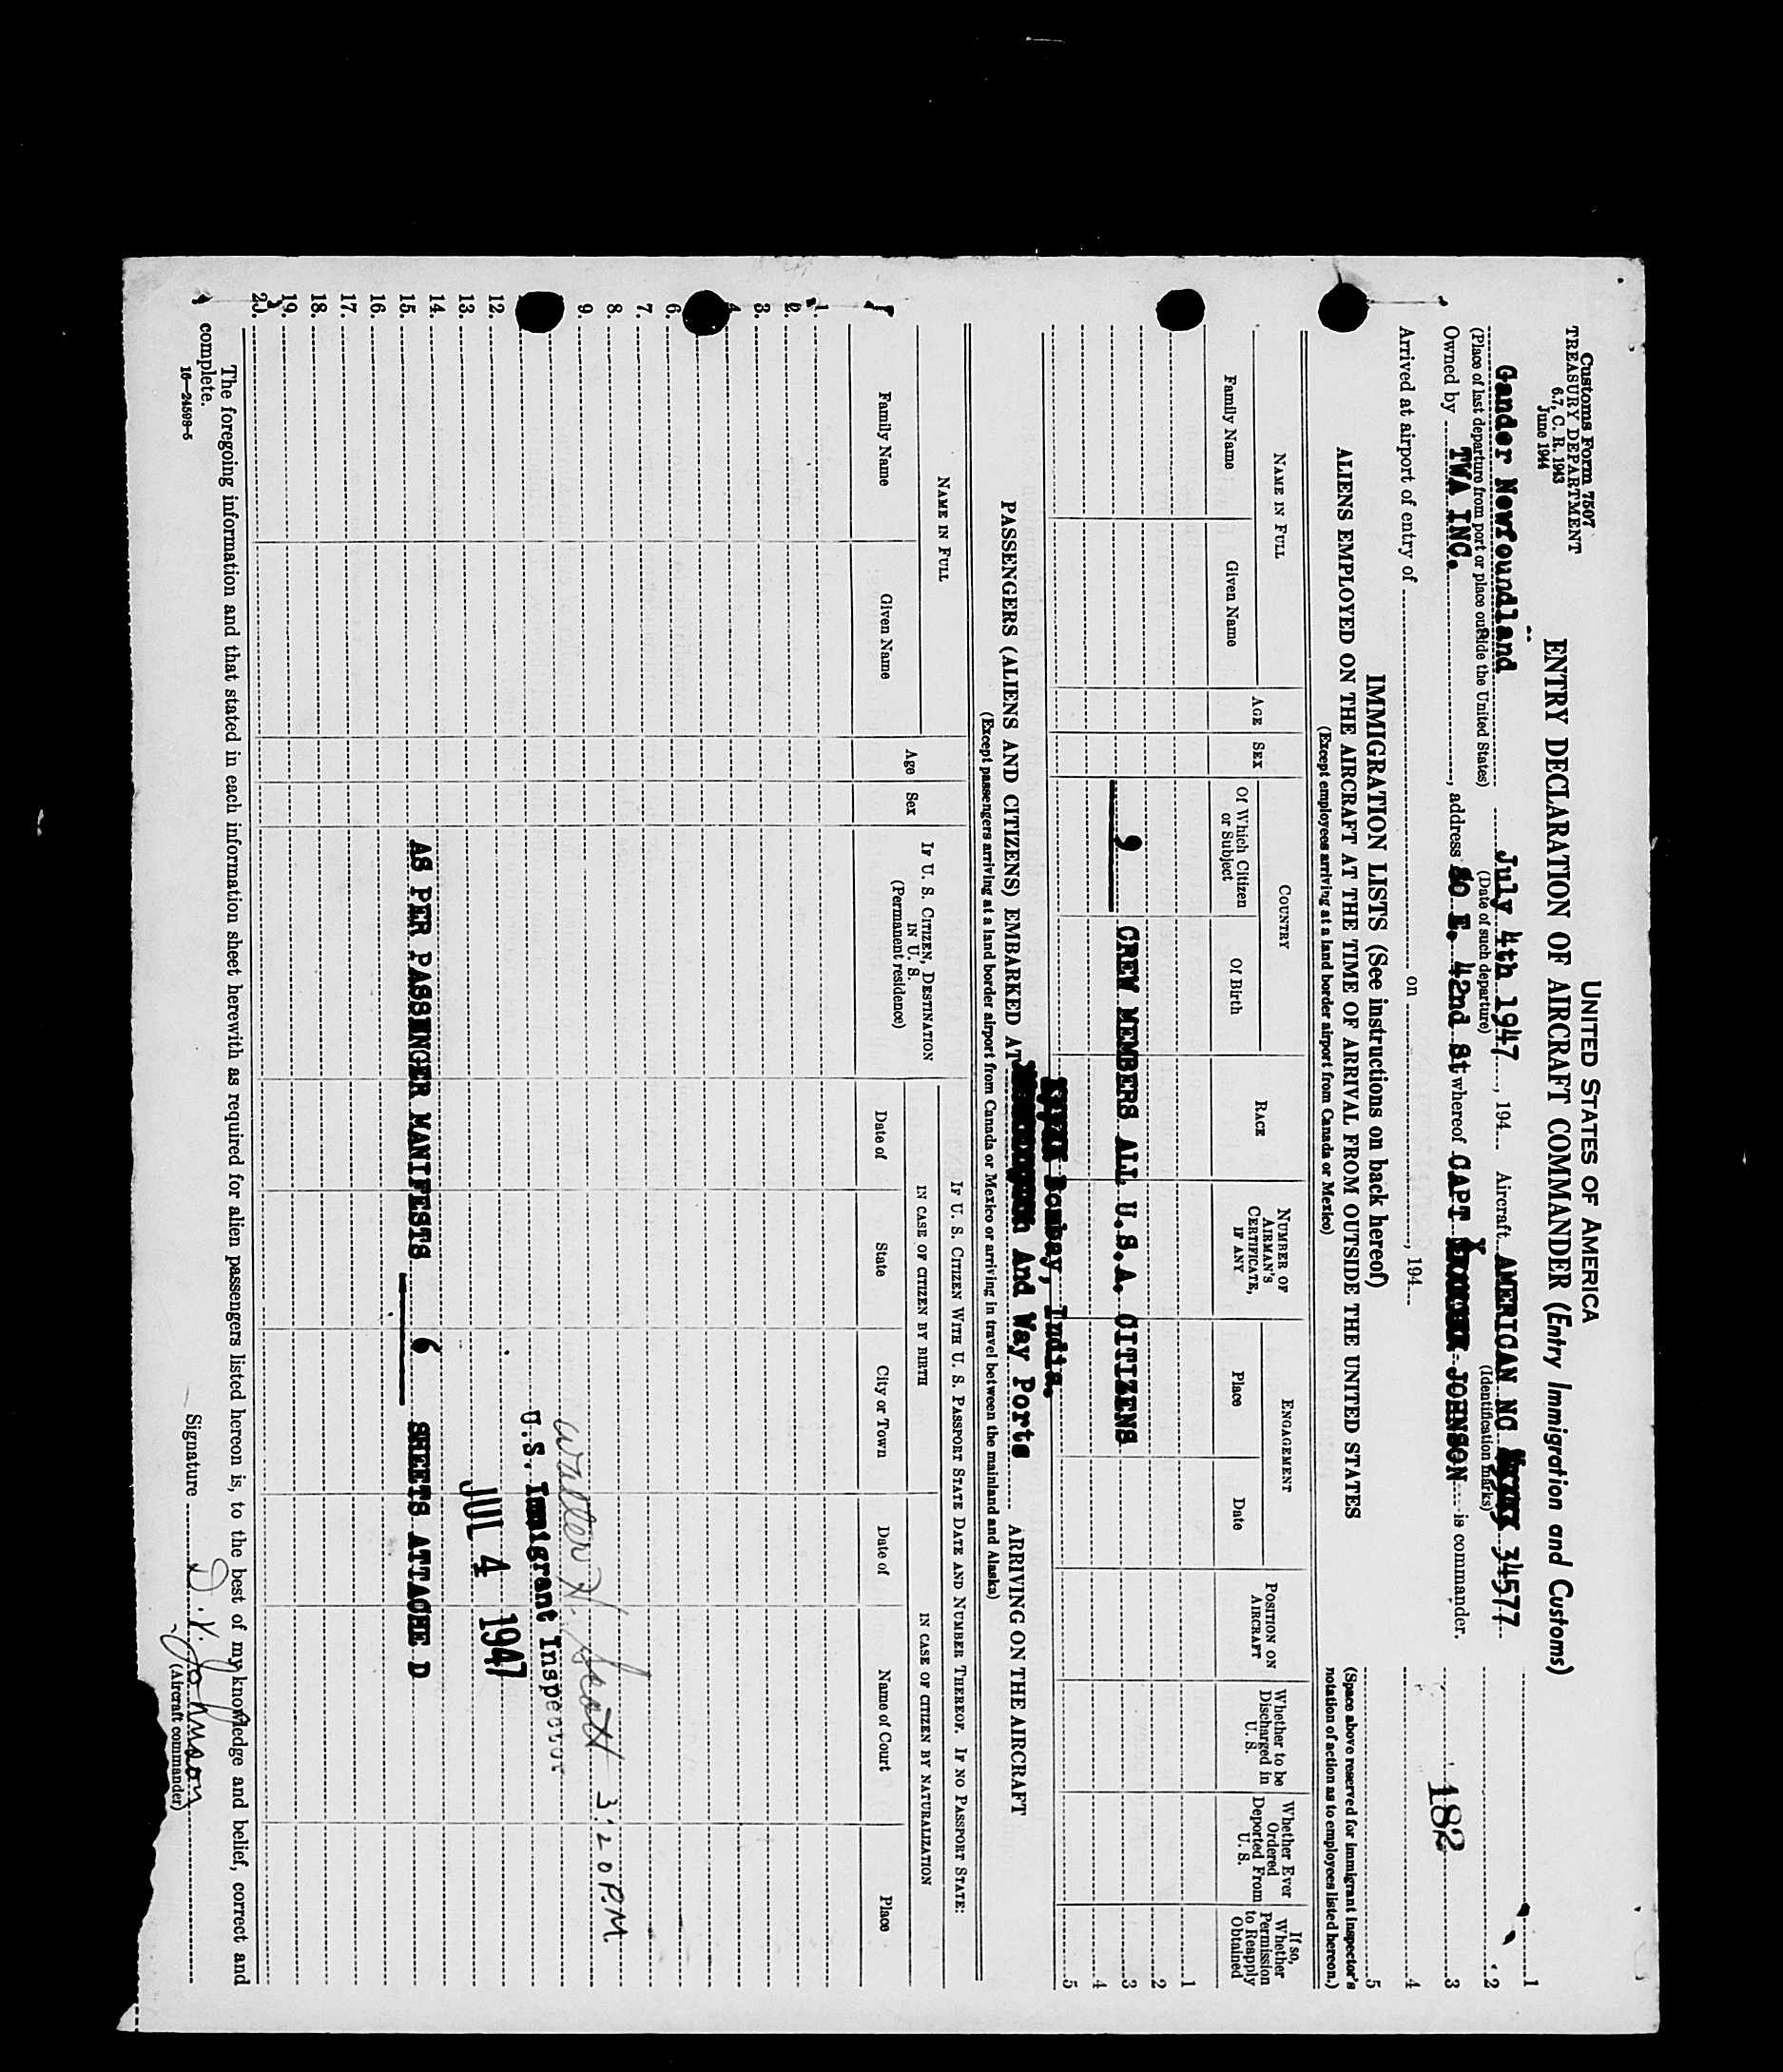 Customs Form 7507
TREASURY DEPARTMENT
6.7, C. R. 1943
June 1944
UNITED STATES OF AMERICA
ENTRY DECLARATION OF AIRCRAFT COMMANDER (Entry Immigration and Customs)
Gander Newfoundland July 4th 1947, 194 Aircraft AMERICAN NC 34577
(Place of last departure from port or place outside the United States) (Date of such departure) (Identification marks)
Owned by TWA INC., address 80 E. 42nd St whereof CAPT JOHNSON is commander.
Arrived at airport of entry of on , 194
1
2
3
4
5
182
(Space above reserved for immigrant inspector's
notation of action as to employees listed hereon.)
IMMIGRATION LISTS (See instructions on back hereof)
ALIENS EMPLOYED ON THE AIRCRAFT AT THE TIME OF ARRIVAL FROM OUTSIDE THE UNITED STATES
(Except employees arriving at a land border airport from Canada or Mexico)
NAME IN FULL
Family Name
Given Name
AGE
SEX
COUNTRY
Of Which Citizen
or Subject
Of Birth
RACE
NUMBER OF
AIRMAN'S
CERTIFICATE,
IF ANY
ENGAGEMENT
Place
Date
POSITION ON
AIRCRAFT
Whether to be
Discharged in
U. S.
Whether Ever
Ordered
Deported From
U. S.
If so,
Whether
Permission
to Reapply
Obtained
1
2
9 CREW MEMBERS ALL U.S.A. CITIZENS 3
4
5
Bombay, India.
PASSENGERS (ALIENS AND CITIZENS) EMBARKED AT And Way Ports ARRIVING ON THE AIRCRAFT
(Except passengers arriving at a land border airport from Canada or Mexico or arriving in travel between the mainland and Alaska)
NAME IN FULL
Family Name
Given Name
Age
Sex
IF U. S. CITIZEN, DESTINATION
IN U. S.
(Permanent residence)
IF U. S. CITIZEN WITH U. S. PASSPORT STATE DATE AND NUMBER THEREOF. IF NO PASSPORT STATE:
IN CASE OF CITIZEN BY BIRTH
IN CASE OF CITIZEN BY NATURALIZATION
Date of
State
City or Town
Date of
Name of Court
Place
1.
2.
3.
4
6.
7.
8.
9.
Walter H. Scott 3:20 P.M.
U.S. Immigrant Inspector
12.
JUL 4 1947
13.
14.
15. AS PER PASSENGER MANIFESTS 6 SHEETS ATTACHE D
16.
17.
18.
19.
20.
The foregoing information and that stated in each information sheet herewith as required for alien passengers listed hereon is, to the best of my knowledge and belief, correct and
complete.
16—24598-5
Signature D. Y. Johnson
(Aircraft commander)